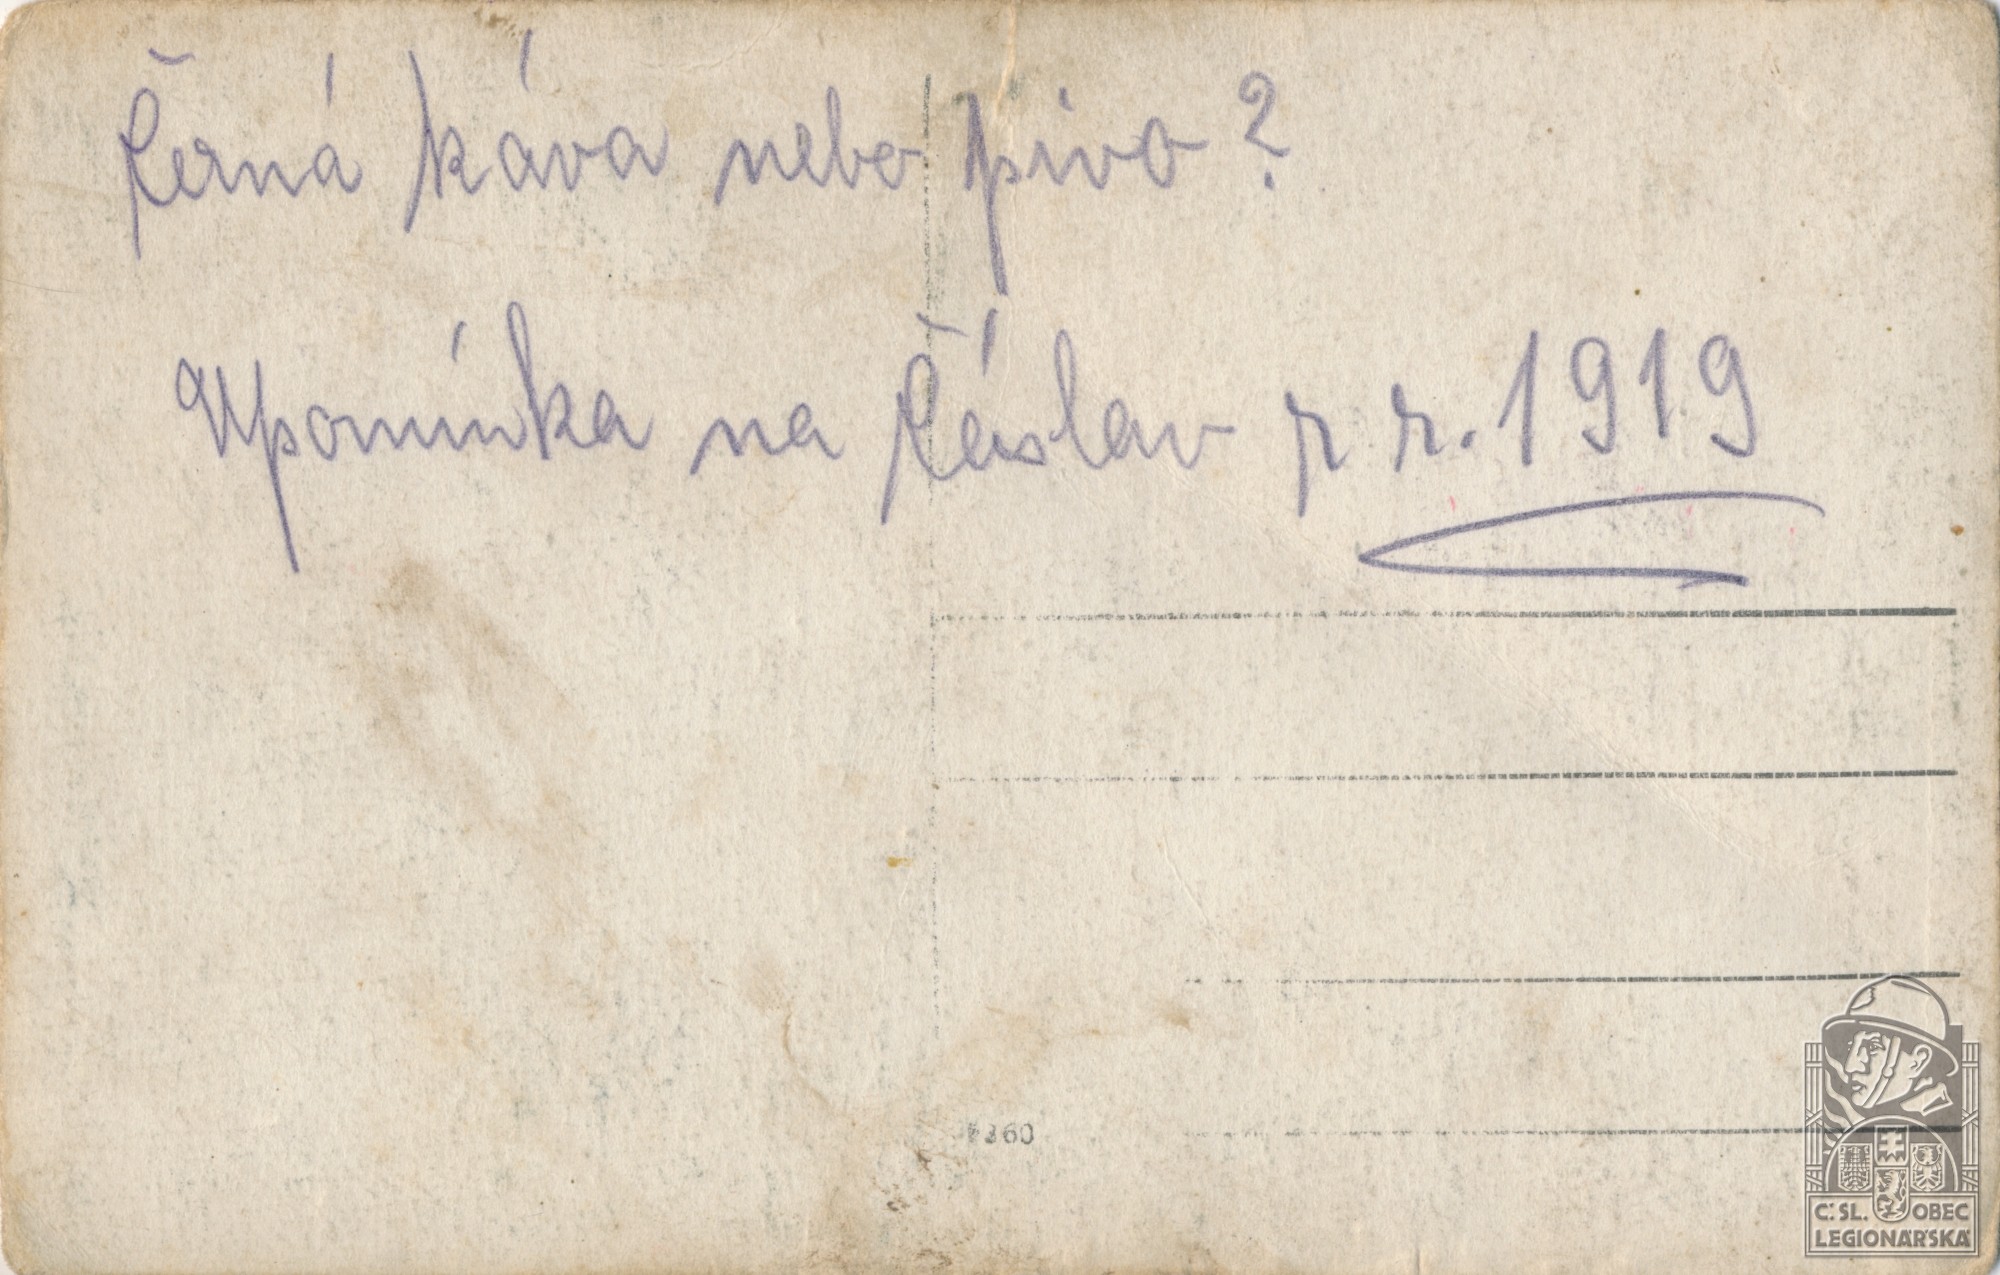 Černá káva nebo pivo?
Upomínka na Čáslav z r. 1919
C.SL. OBEC
LEGIONÁŘSKÁ